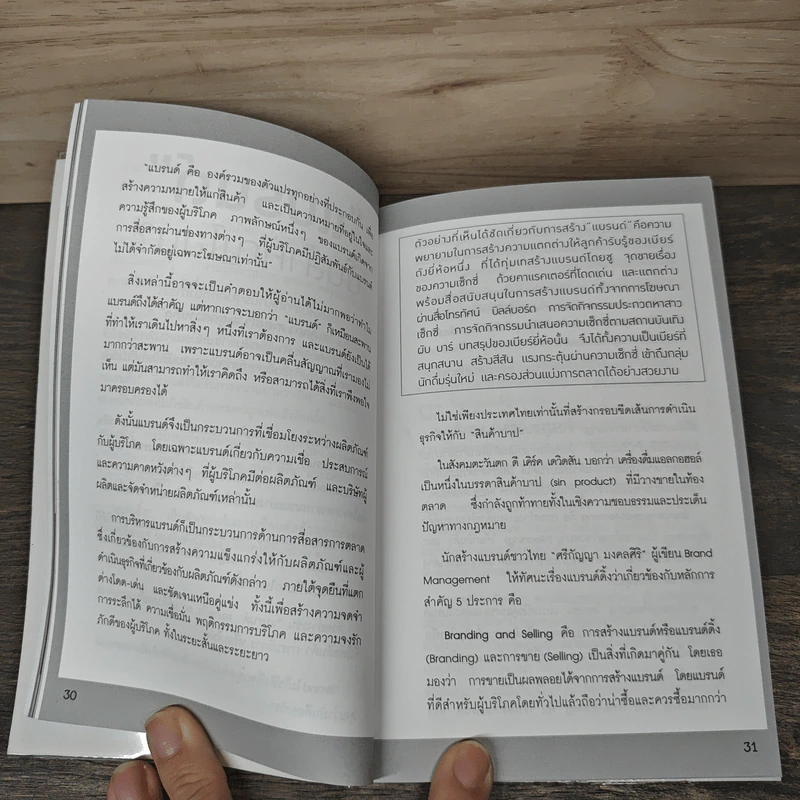 "แบรนด์ คือ องค์รวมของตัวแปรทุกอย่างที่ประกอบกัน เพื่อ
สร้างความหมายให้แก่สินค้า และเป็นความหมายที่อยู่ในใจและ
ความรู้สึกของผู้บริโภค ภาพลักษณ์หนึ่งๆ ของแบรนด์เกิดจาก
การสื่อสารผ่านช่องทางต่างๆ ที่ผู้บริโภคมีปฏิสัมพันธ์กับแบรนด์
ไม่ได้จำกัดอยู่เฉพาะโฆษณาเท่านั้น"
สิ่งเหล่านี้อาจจะเป็นคำตอบให้ผู้อ่านได้ไม่มากพอว่าทำไม
แบรนด์ถึงได้สำคัญ แต่หากเราจะบอกว่า "แบรนด์" ก็เหมือนสะพาน
ที่ทำให้เราเดินไปหาสิ่งๆ หนึ่งที่เราต้องการ และแบรนด์ยังเป็นได้
มากกว่าสะพาน เพราะแบรนด์อาจเป็นคลื่นสัญญาณที่เรามองไม่
เห็น แต่มันสามารถทำให้เราคิดถึง หรือสามารถได้สิ่งที่เราพึงพอใจ
มาครอบครองได้
ดังนั้นแบรนด์จึงเป็นกระบวนการที่เชื่อมโยงระหว่างผลิตภัณฑ์
กับผู้บริโภค โดยเฉพาะแบรนด์เกี่ยวกับความเชื่อ ประสบการณ์
และความคาดหวังต่างๆ ที่ผู้บริโภคมีต่อผลิตภัณฑ์ และบริษัทผู้
ผลิตและจัดจำหน่ายผลิตภัณฑ์เหล่านั้น
การบริหารแบรนด์ก็เป็นกระบวนการด้านการสื่อสารการตลาด
ซึ่งเกี่ยวข้องกับการสร้างความแข็งแกร่งให้กับผลิตภัณฑ์และผู้
ดำเนินธุรกิจที่เกี่ยวข้องกับผลิตภัณฑ์ดังกล่าว ภายใต้จุดยืนที่แตก
ต่างโดด-เด่น และชัดเจนเหนือคู่แข่ง ทั้งนี้เพื่อสร้างความจดจำ
การระลึกได้ ความเชื่อมั่น พฤติกรรมการบริโภค และความจงรัก
ภักดีของผู้บริโภค ทั้งในระยะสั้นและระยะยาว
30
ตัวอย่างที่เห็นได้ชัดเกี่ยวกับการสร้าง "แบรนด์" คือความ
พยายามในการสร้างความแตกต่างให้ลูกค้ารับรู้ของเบียร์
ดังยี่ห้อหนึ่ง ที่ได้ทุ่มเทสร้างแบรนด์โดยชู จุดขายเรื่อง
ของความเซ็กซี่ ด้วยคาแรคเตอร์ที่โดดเด่น และแตกต่าง
พร้อมสื่อสนับสนุนในการสร้างแบรนด์ทั้งจากการโฆษณา
ผ่านสื่อโทรทัศน์ บิลล์บอร์ด การจัดกิจกรรมประกวดหาสาว
เซ็กซี่ การจัดกิจกรรมนำเสนอความเซ็กซี่ตามสถานบันเทิง
ผับ บาร์ บทสรุปของเบียร์ยี่ห้อนั้น จึงได้ทั้งความเป็นเบียร์ที่
สนุกสนาน สร้างสีสัน แรงกระตุ้นผ่านความเซ็กซี่ เข้าถึงกลุ่ม
นักดื่มรุ่นใหม่ และครองส่วนแบ่งการตลาดได้อย่างสวยงาม
ไม่ใช่เพียงประเทศไทยเท่านั้นที่สร้างกรอบขีดเส้นการดำเนิน
ธุรกิจให้กับ "สินค้าบาป"
ในสังคมตะวันตก ดี เคิร์ค เดวิดสัน บอกว่า เครื่องดื่มแอลกอฮอล์
เป็นหนึ่งในบรรดาสินค้าบาป (sin product) ที่มีวางขายในท้อง
ตลาด ซึ่งกำลังถูกท้าทายทั้งในเชิงความชอบธรรมและประเด็น
ปัญหาทางกฎหมาย
นักสร้างแบรนด์ชาวไทย "ศรีกัญญา มงคลศิริ" ผู้เขียน Brand
Management ให้ทัศนะเรื่องแบรนด์ดิ้งว่าเกี่ยวข้องกับหลักการ
สำคัญ 5 ประการ คือ
Branding and Selling คือ การสร้างแบรนด์หรือแบรนด์ดิ้ง
(Branding) และการขาย (Selling) เป็นสิ่งที่เกิดมาคู่กัน โดยเธอ
มองว่า การขายเป็นผลพลอยได้จากการสร้างแบรนด์ โดยแบรนด์
ที่ดีสำหรับผู้บริโภคโดยทั่วไปแล้วถือว่าน่าซื้อและควรซื้อมากกว่า
31